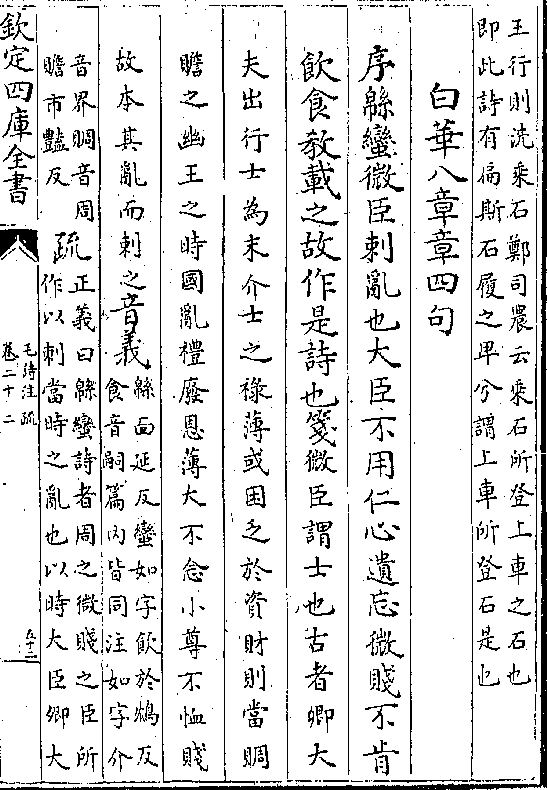 王行則洗乘石鄭司農云乘石所登上車之石也
即此詩有扁斯石履之卑兮謂上車所登石是也
白華八章章四句
序緜蠻微臣刺亂也大臣不用仁心遺忘微賤不肯
飲食教載之故作是詩也箋微臣謂士也古者卿大
夫出行士為末介士之祿薄或困乏於資財則當賙
贍之幽王之時國亂禮廢恩薄大不念小尊不恤賤
故本其亂而刺之音義緜面延反蠻如字飲於鴆反
食音嗣篇內皆同注如字介
音界賙音周
贍市豔反
疏正義曰緜蠻詩者周之微賤之臣所
作以刺當時之亂也以時大臣卿大
欽定四庫全書
毛詩注疏
卷二十二